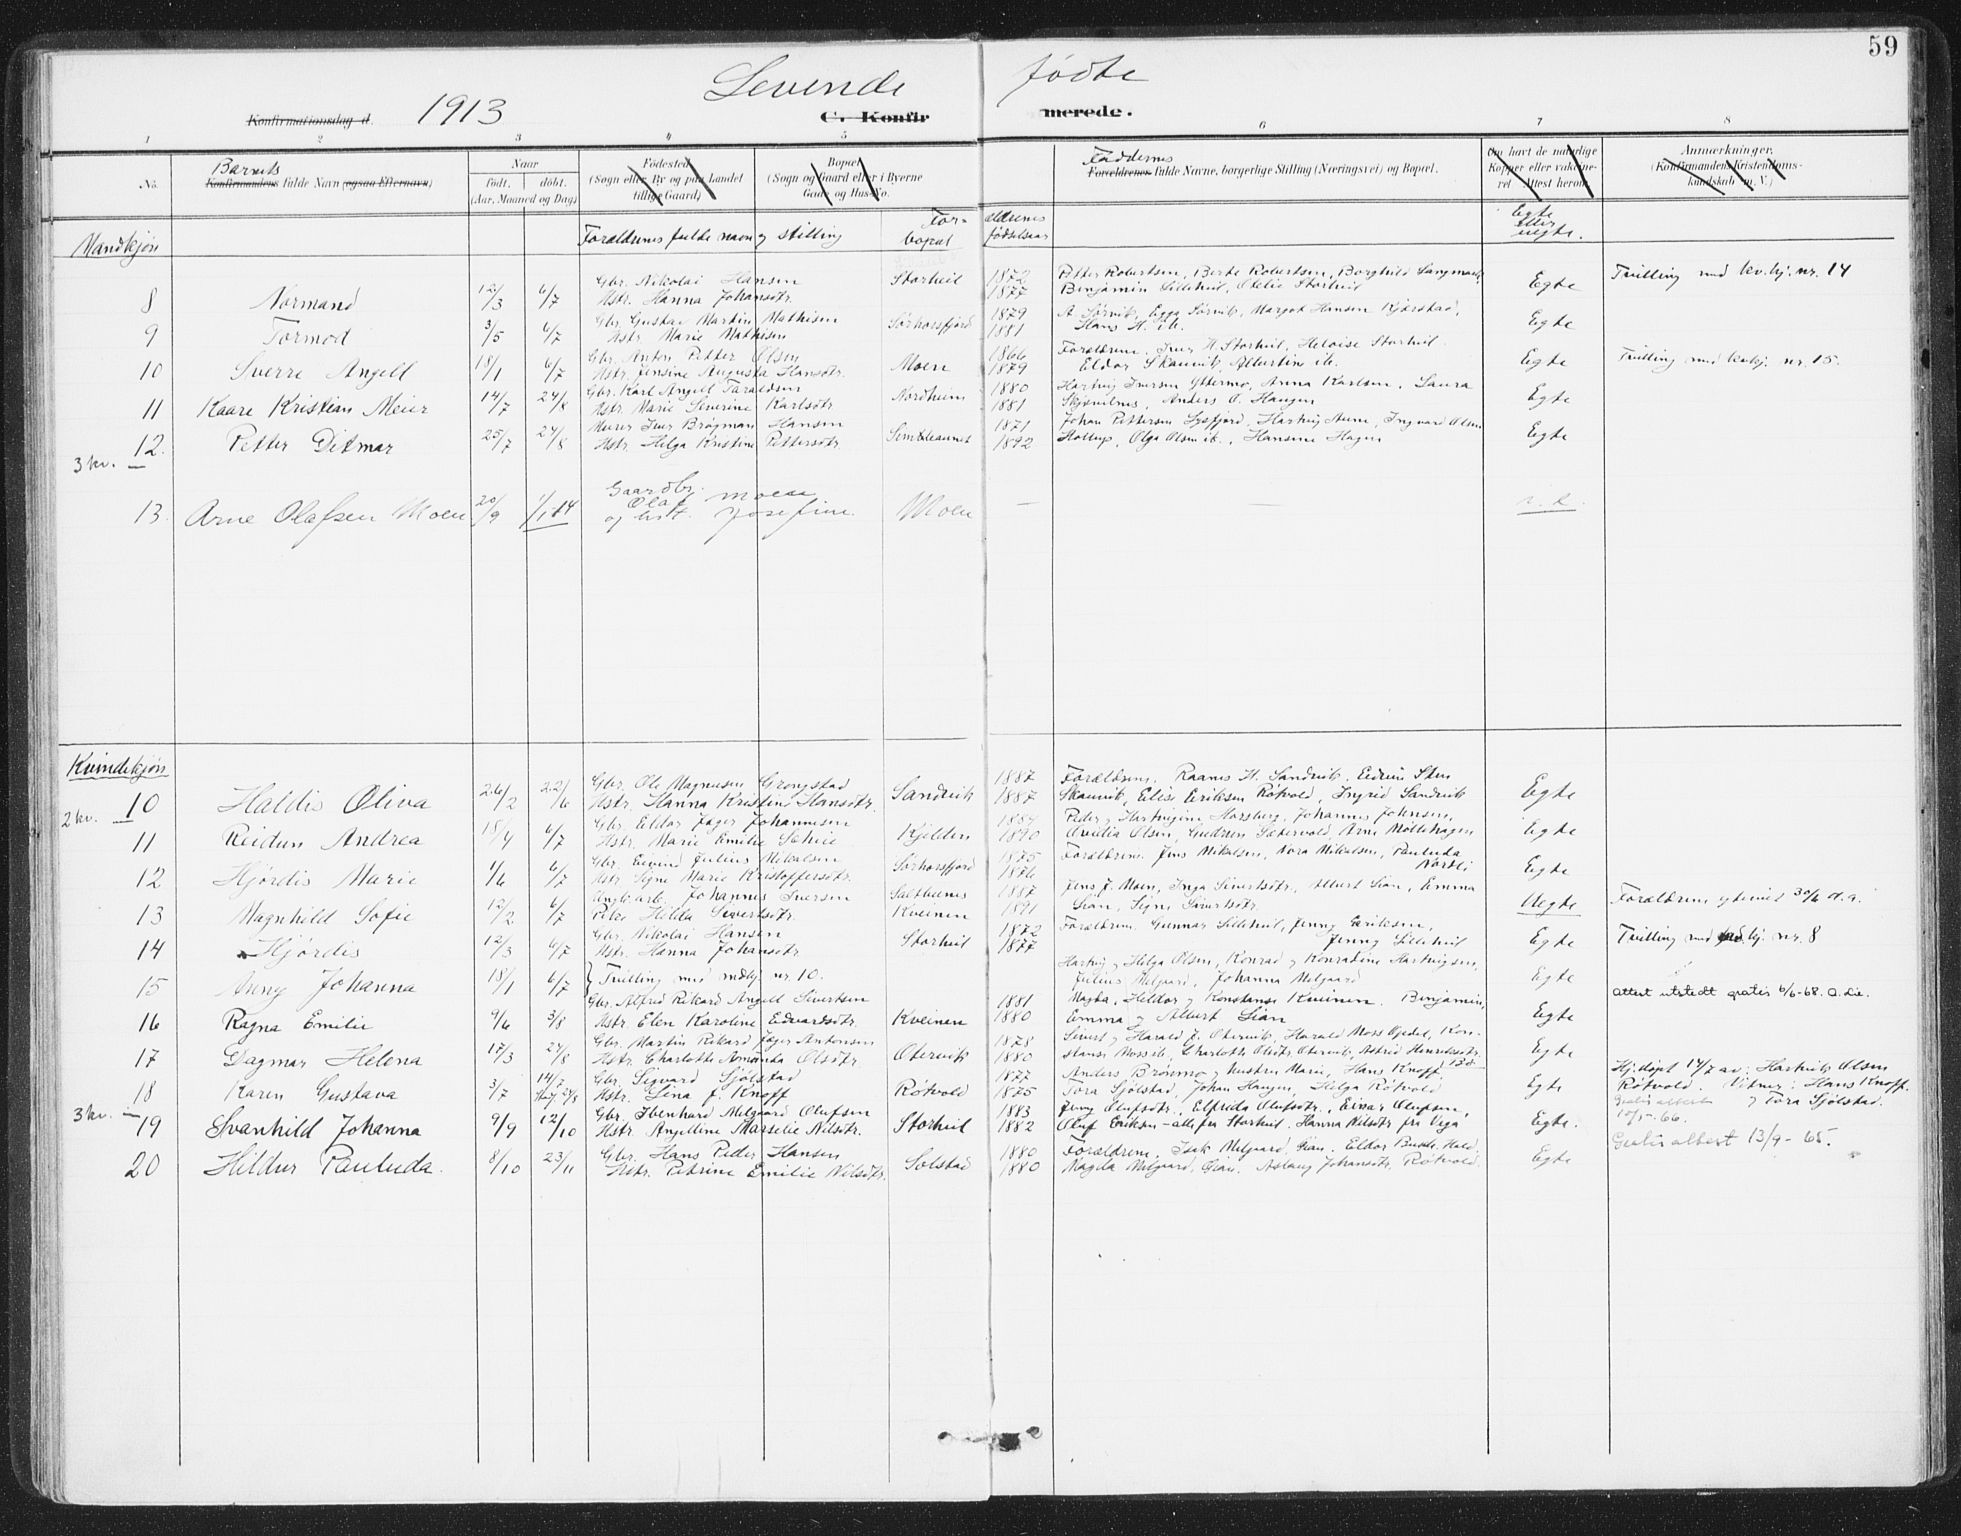 59
Levende fødte
Konfirmationsdag d. 1913 C. Konfirmerede.
1 2 3 4 5 6 7 8
No. Barnets Konfirmandens fulde Navn (ogsaa Efternavn) Naar født. døbt. (Aar, Maaned og Dag) Fødested (Sogn eller By og paa Landet tillige Gaard) Bopæl (Sogn og Gaard eller i Byerne Gade og Hus-No. Faddernes Forældrenes fulde Navne, borgerlige Stilling (Næringsvei) og Bopæl. Om havt de naturlige Kopper eller vakcineret. Attest herom. Anmærkninger. (Konfirmandens Kristendomskundskab m. V.)
Mandkjøn Forældrenes fulde navn og stilling Forældrenes bopæl fødselsaar Egte eller uegte.
8 Normand 12/3 6/7 Gbr. Nikolai Hansen Storheil 1872 Petter Robertsen, Berte Robertsen, Borghild Langmark,
Hstr. Hanna Johansdtr. 1877 Benjamin Lilleheil, Otelie Storheil Egte Tvilling med kv.kj. nr. 14
9 Tormod 3/5 6/7 Gbr. Gustav Martin Mathisen Sørhorsfjord 1879 A. Sørvik, Egga Sørvik, Margot Hansen Kjærstad,
Hstr. Marie Mathisen 1881 Hans H. ib. Egte
10 Sverre Angell 18/1 6/7 Gbr. Anton Petter Olsen Moen 1866 Forældrene, Iver H. Storheil, Heloise Storheil.
Hstr. Jensine Augusta Hansdtr. 1879 Eldor Skaanvik, Albertine ib. Egte Tvilling med kvkj. nr. 15.
11 Kaare Kristian Meier 14/7 24/8 Gbr. Karl Angell Taraldsen Nordheim 1880 Hartvig Iversen Yttermo, Anna Karlsen, Laura
Hstr. Marie Severine Karlsdtr. 1881 Skjevilnes, Anders O. Haugen Egte
12. Petter Ditmar 25/7 24/8 Murer Iver Brøgman Hansen 1871 Johan Pettersen Lysfjord, Hartvig Aune, Ingvard Olsen
3 kv. Hstr. Helga Kristine Pettersdtr. 1892 Olga Olsen ib., Hansine Hagen Egte
13. Arne Olafsen Moen 20/9 1/1 14 Gaardbr. Olaf Moen og hst. Josefine Moen —
Kvindekjøn
2 kv. 10 Haldis Oliva 26/2 22/6 Gbr. Ole Magnusen Grongstad Sandvik 1887 Forældrene, Raanes H. Sandvik, Eidrun Sten
Hstr. Hanna Kristine Hansdtr. 1887 Skaanvik, Elise Eriksen Røtvold, Ingrid Sandvik Egte
11 Reidun Andrea 18/4 6/7 Gbr. Eldor Jager Johannesen Kjelden 1884 Peder og Hartvigine Horsberg, Johannes Johnsen,
Hstr. Marie Emilie 1890 Ovidia Olsen, Gudrun Sætervold, Arne Møllehagen Egte
12 Hjørdis Marie 1/6 6/7 Gbr. Eivind Julius Mikalsen Sørhorsfjord 1875 Forældrene, Jens Mikalsen, Nora Mikalsen, Pauluda
Hstr. Signe Marie Kristoffersdtr. 1876 Nordli Egte
13 Magnhild Sofie 12/2 6/7 Ungk. arb. Johannes Iversen 1887 Jens J. Moen, Inga Sivertsdtr., Albert Lian, Emma
Pike Hilda Sivertsdtr. Kveinen 1891 Lian, Signe Sivertsdtr. Uegte Forældrene gteviet 30/6 d.a.
14 Hjørdis 12/3 6/7 Gbr. Nikolai Hansen Storheil 1872 Forældrene, Gunnar Lilleheil, Jenny Eriksen,
Hstr. Hanna Johansdtr. 1877 Jenny Lilleheil Egte Tvilling med mdkj. nr. 8
15 Anny Johanna 18/1 6/7 Tvilling med mdkj. nr. 10. Hartvig og Helga Olsen, Konrad og Konradine Hartvigsen,
Julius Melgaard, Johanna Melgaard Egte
16 Ragna Emilie 9/6 3/8 Gbr. Alfred Rikard Angell Sivertsen 1881 Magda, Heldor og Konstanse Kveinen. Benjamin, attest utstedt gratis 6/6-68. O. Lie.
Hstr. Elen Karoline Edvardsdtr. Kveinen 1880 Emma og Albert Lian Egte
17 Dagmar Helena 17/3 24/8 Gbr. Martin Rikard Jager Antonsen 1878 Sivert og Harald J. Otervik, Harald Moss Gjedel, Kon-
Hstr. Charlotte Amanda Olsdtr. Otervik 1880 stanse Moss ib., Charlotte Olsdtr. Otervik, Astrid Henriksdtr. Egte
18 Karen Gustava 3/7 14/7 Gbr. Sigvard Sjølstad Røtvold 1877 Anders Brønmo og hustru Marie, Hans Knoff Hj.døpt 14/7 av: Hartvik Olsen
Hstr. Lina J. Knoff 1875 Tora Sjølstad, Johan Haugen, Helga Røtvold Egte Røtvold. Vitner: Hans Knoff
og Tora Sjølstad.
3 kv. 19 Svanhild Johanna 9/9 12/10 Gbr. Ibenhard Melgaard Olufsen Storheil 1883 Jenny Olufsdtr., Elfrida Olufsdtr., Einar Olufsen, 10/5-66.
Hstr. Angelline Marselie Nilsdtr. 1882 Oluf Eriksen - alle fra Storheil. Hanna Nilsdtr fra Vega Egte.
20 Hildur Pauluda. 8/10 23/11 Gbr. Hans Peder Hansen Solstad 1880 Forældrene, Isak Melgaard, Grau. Eldor Buvik, Hald, Gratis attest 13/9-65.
Hstr. Petrine Emilie Nilsdtr. 1880 Magda Melgaard, Grau. Aslaug Johansdtr. Røtvold. Egte